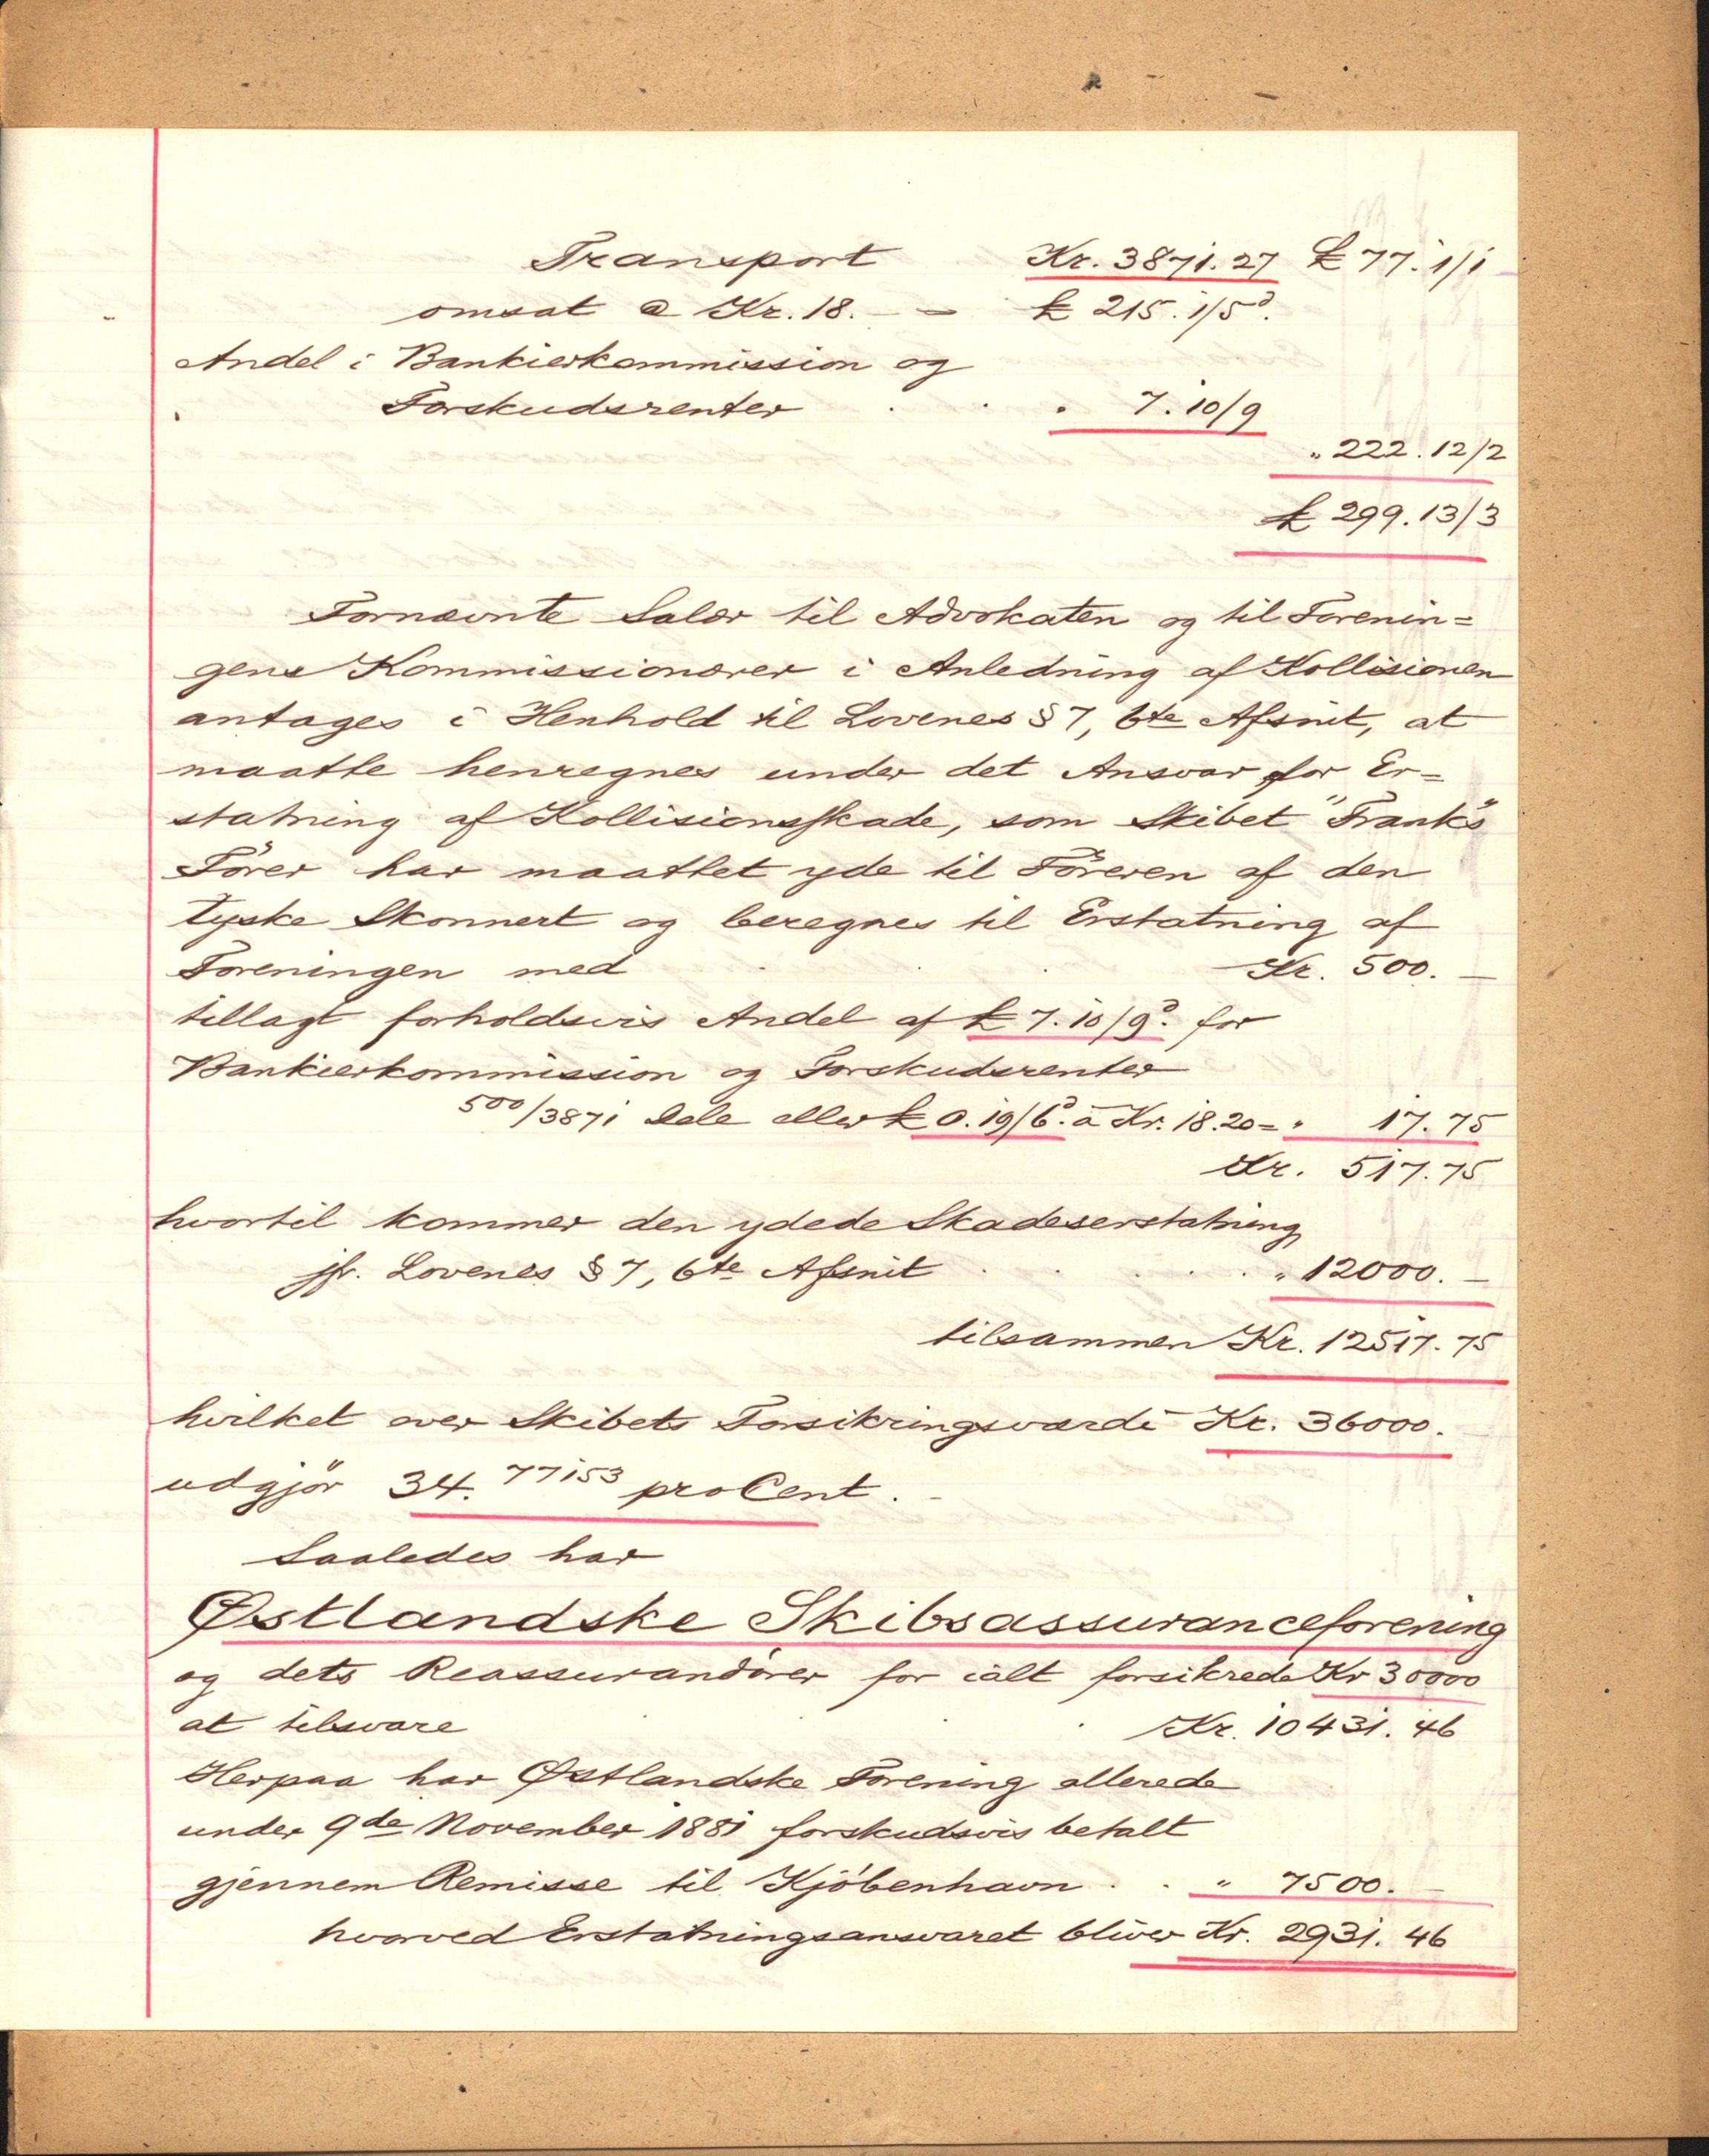 Transport Kr. 3871.27 £ 77.1/1
omsat a Kr. 18. — = £ 215.1/5d.
Andel i Bankierkommission og
Forskudsrenter . . " 7.10/9
" 222.12/2
£ 299.13/3
Fornævnte Salær til Advokaten og til Forenin=
gens Kommissionærer i Anledning af Kollisionen
antages i Henhold til Lovenes § 7, 6te Afsnit, at
maatte henregnes under det Ansvar for Er=
statning af Kollisionsskade, som Skibet "Frank's"
Fører har maattet yde til Føreren af den
tyske Skonnert og beregnes til Erstatning af
Foreningen med . . Kr. 500. —
tillagt forholdsvis Andel af £ 7.10/9d. for
Bankierkommission og Forskudsrenter
500/3871 Dele eller £ 0.19/6d. à Kr. 18.20 = " 17.75
Kr. 517.75
hvortil kommer den ydede Skadeserstatning
jfr. Lovenes § 7, 6te Afsnit . . . . . " 12000. —
tilsammen Kr. 12517.75
hvilket over Skibets Forsikringsværdi Kr. 36000. —
udgjør 34.77153 pro Cent. —
Saaledes har
Østlandske Skibsassuranceforening
og dets Reassurandører for ialt forsikrede Kr 30000
at tilsvare . . Kr. 10431.46
Herpaa har Østlandske Forening allerede
under 9de November 1881 forskudsvis betalt
gjennem Remisse til Kjøbenhavn . . " 7500. —
hvorved Erstatningsansvaret bliver Kr. 2931.46